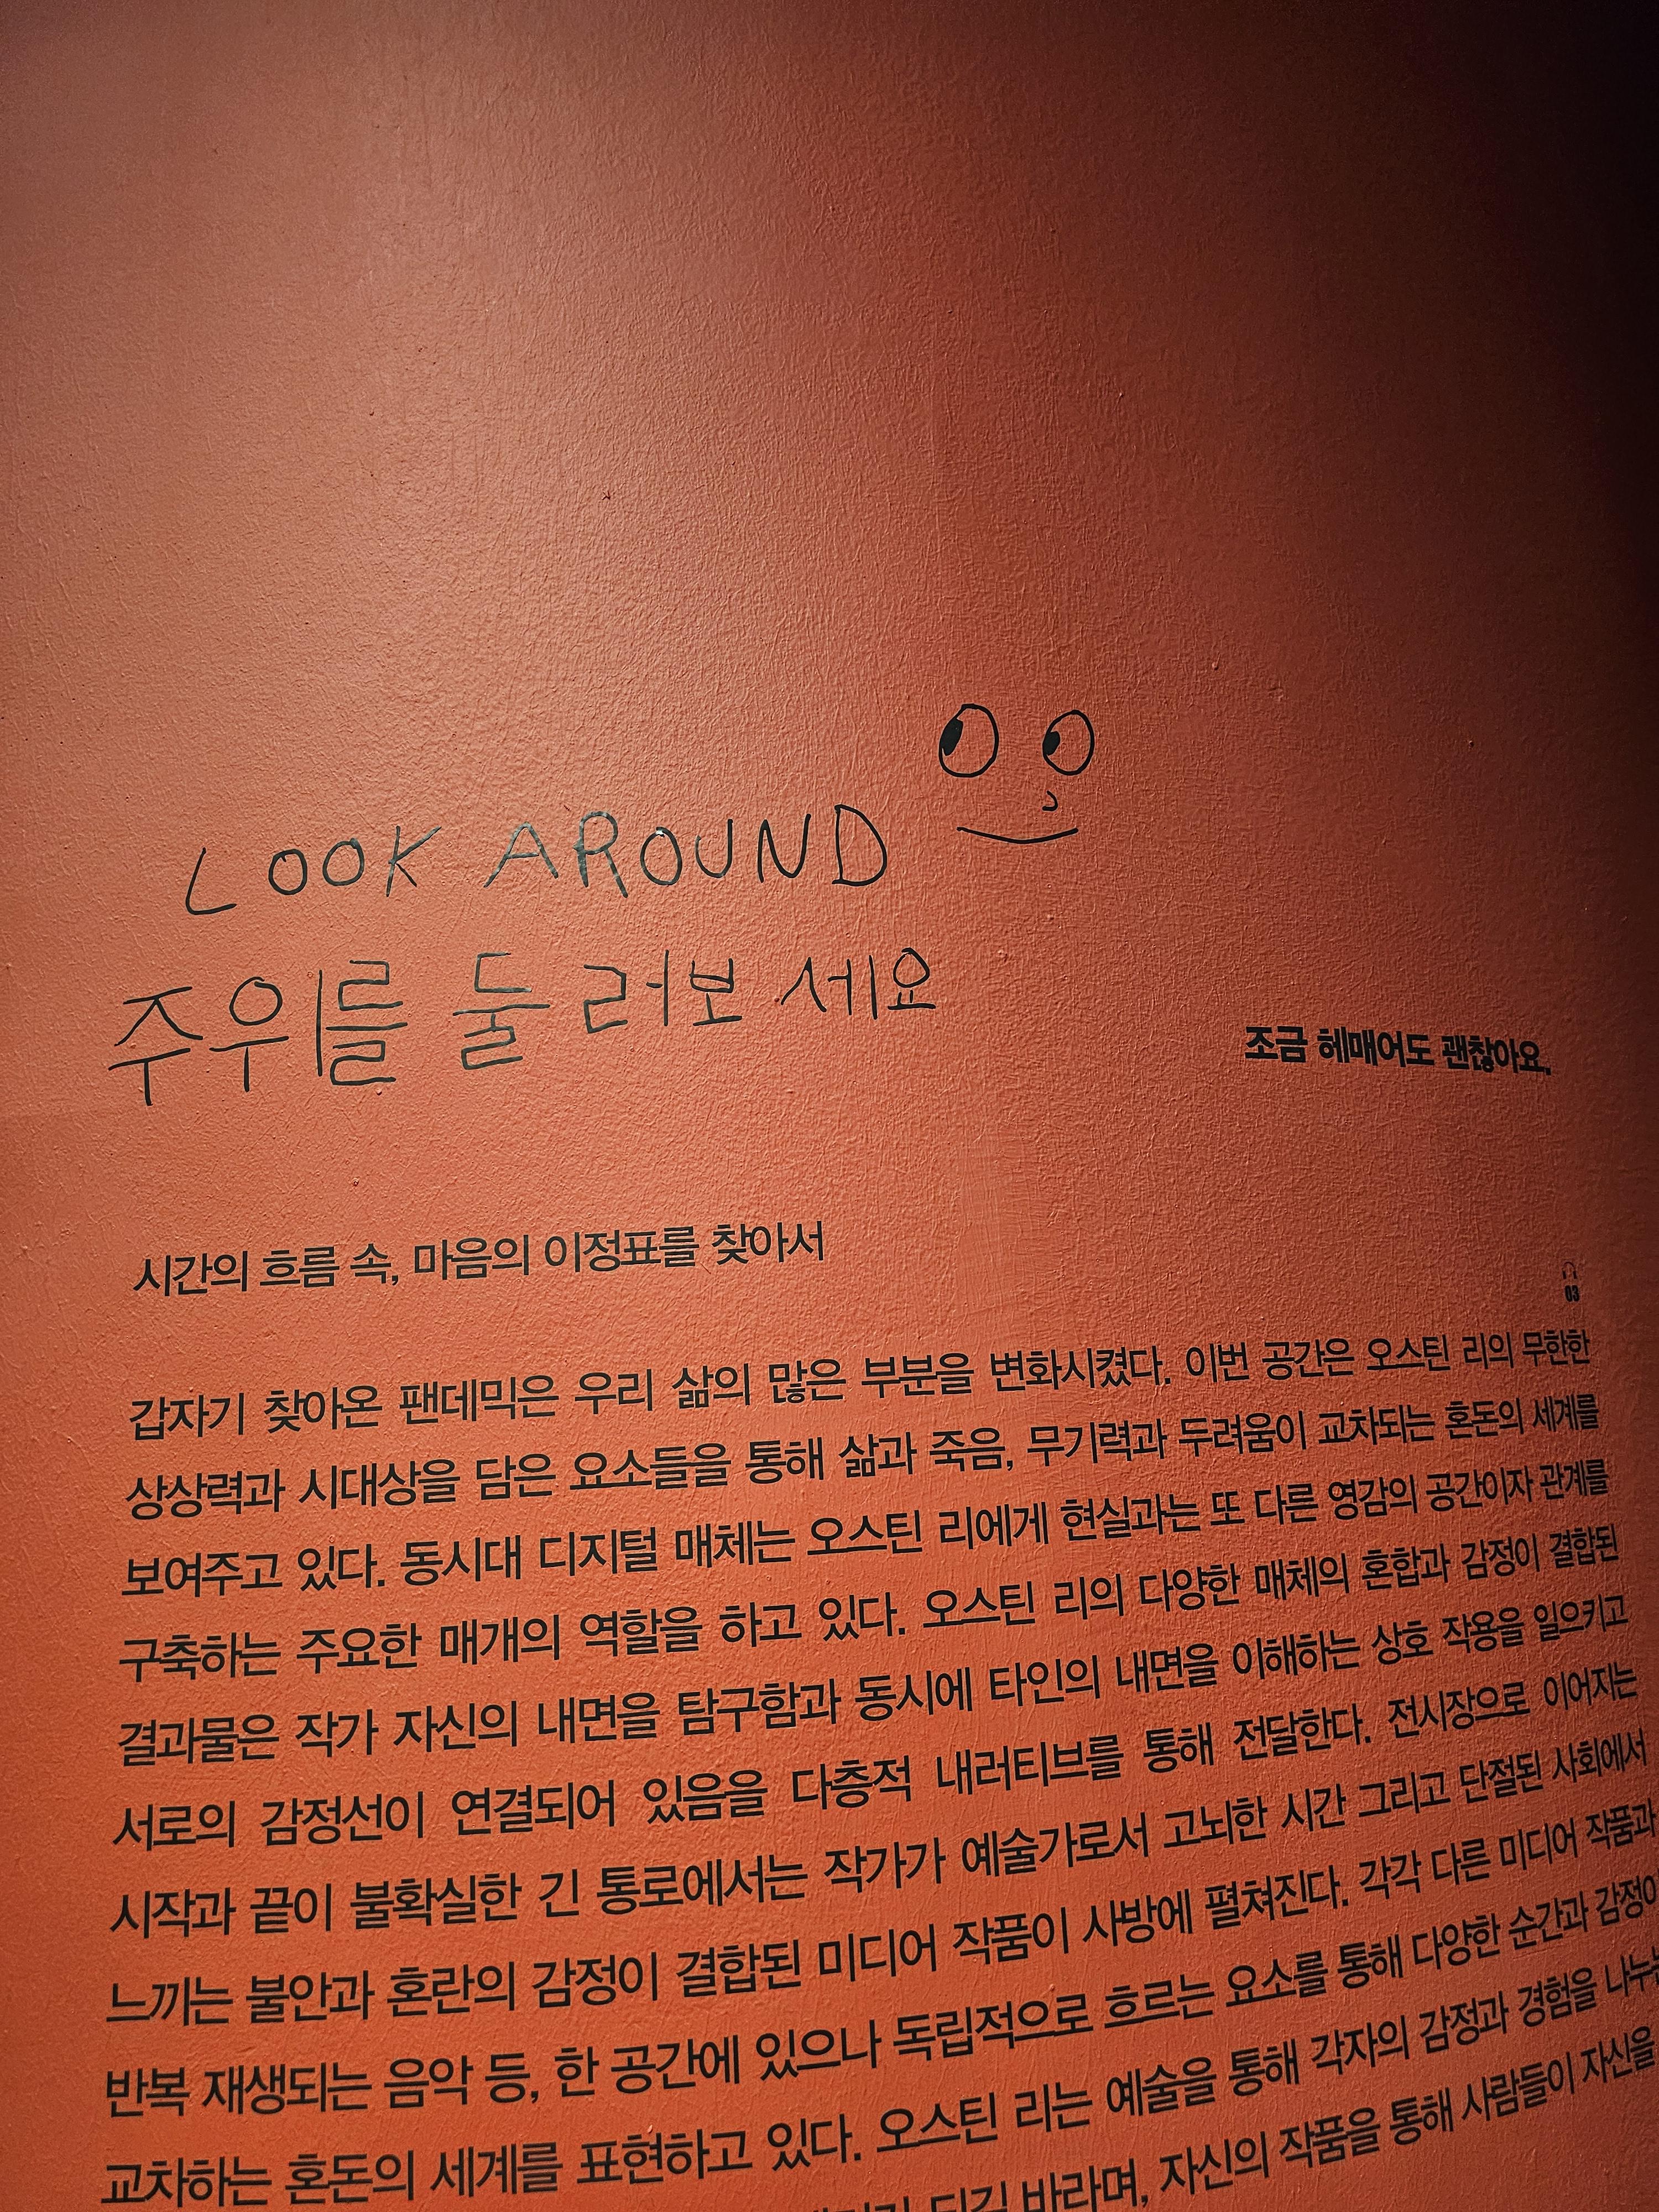 LOOK AROUND
주위를 둘러보세요
조금 헤매어도 괜찮아요.
시간의 흐름 속, 마음의 이정표를 찾아서
03
갑자기 찾아온 팬데믹은 우리 삶의 많은 부분을 변화시켰다. 이번 공간은 오스틴 리의 무한한
상상력과 시대상을 담은 요소들을 통해 삶과 죽음, 무기력과 두려움이 교차되는 혼돈의 세계를
보여주고 있다. 동시대 디지털 매체는 오스틴 리에게 현실과는 또 다른 영감의 공간이자 관계를
구축하는 주요한 매개의 역할을 하고 있다. 오스틴 리의 다양한 매체의 혼합과 감정이 결합된
결과물은 작가 자신의 내면을 탐구함과 동시에 타인의 내면을 이해하는 상호 작용을 일으키고
서로의 감정선이 연결되어 있음을 다층적 내러티브를 통해 전달한다. 전시장으로 이어지는
시작과 끝이 불확실한 긴 통로에서는 작가가 예술가로서 고뇌한 시간 그리고 단절된 사회에서
느끼는 불안과 혼란의 감정이 결합된 미디어 작품이 사방에 펼쳐진다. 각각 다른 미디어 작품과
반복 재생되는 음악 등, 한 공간에 있으나 독립적으로 흐르는 요소를 통해 다양한 순간과 감정이
교차하는 혼돈의 세계를 표현하고 있다. 오스틴 리는 예술을 통해 각자의 감정과 경험을 나누는
되길 바라며, 자신의 작품을 통해 사람들이 자신을